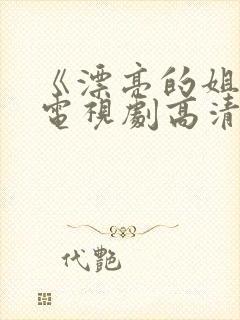 《漂亮的姐
電視劇高清
代艷